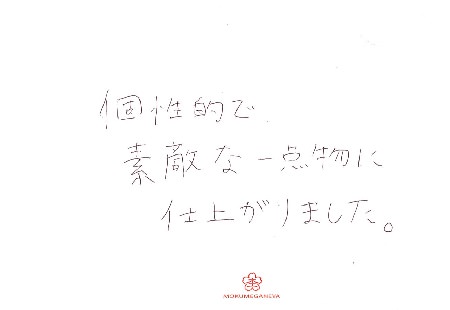 個性的で
素敵な一点物に
仕上がりました。
MOKUMEGANEYA